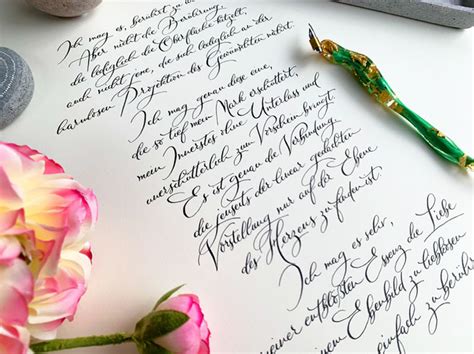 Ich mag es, berührt zu w
Aber nicht die Berührung,
die lediglich die Oberfläche kitzelt,
auch nicht jene, die sich lediglich an der
harmlosen Projektion des Gewünschten nährt.
Ich mag genau diese eine,
die so tief mein Mark erschüttert,
mein Innerstes ohne Unterlass und
unerschütterlich zum Vorschein bringt.
Es ist genau die Verbindung,
die jenseits der linear gedachten
Vorstellung nur auf der Ebene
des Herzens zu finden ist.
Ich mag es sehr,
meiner entblößten Essenz die Liebe
m Ebenbild zu liebkosen
einfach zu berühr